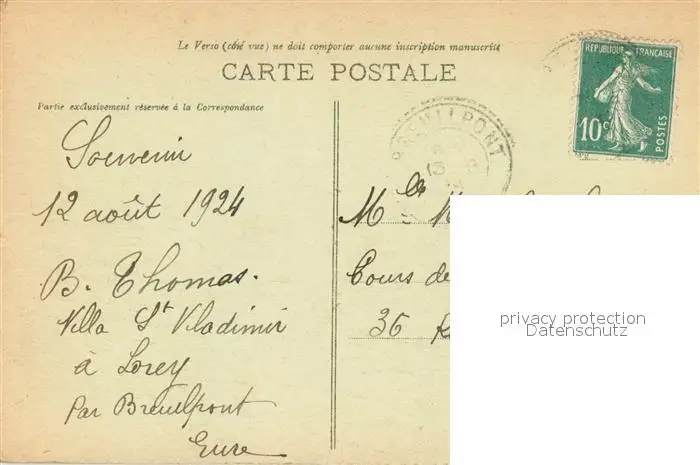 Le Verso (côté vue) ne doit comporter aucune inscription manuscrite
CARTE POSTALE
Partie exclusivement réservée à la Correspondance
Souvenir
12 août 1924
B. Thomas.
Villa St Vladimir
à Lorey
Par Breuilpont
Eure
REPUBLIQUE FRANÇAISE
10c
POSTES
BREUILPONT
13
Mlle
Cours de
36
privacy protection
Datenschutz